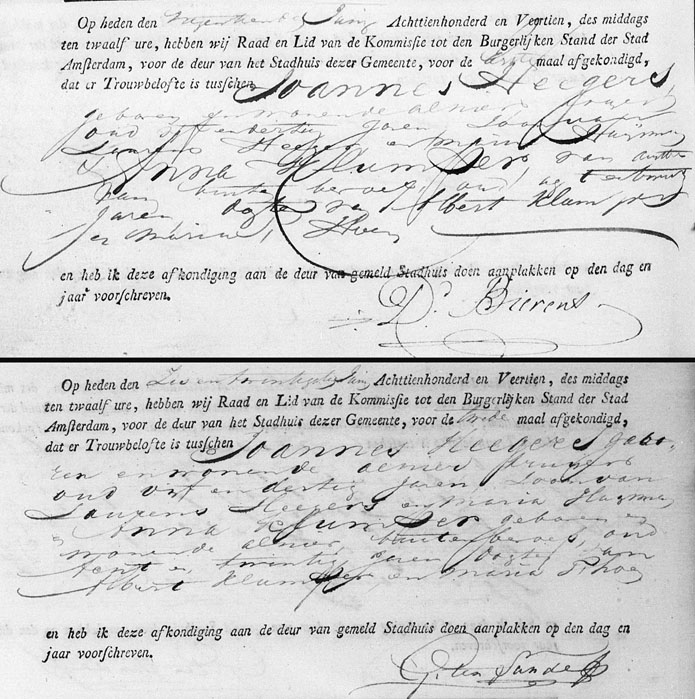 Op heden den Negentienden Juny Achttienhonderd en Veertien, des middags
ten twaalf ure, hebben wij Raad en Lid van de Kommisſie tot den Burgerlijken Stand der Stad
Amſterdam, voor de deur van het Stadhuis dezer Gemeente, voor de Eerste maal afgekondigd,
dat er Trouwbelofte is tusſchen Joannes Heegers
geboren en wonende alhier
oud en dertig Jaren Zoon van
Laurens Heegers en Maria
Anna Klumpser van
van buiten beroep, oud agt en twintig
Jaren dogter van Albert Klumpser
en Maria
en heb ik deze afkondiging aan de deur van gemeld Stadhuis doen aanplakken op den dag en
jaar voorſchreven.
D. Bierens
Op heden den Zes en twintigste Juny Achttienhonderd en Veertien, des middags
ten twaalf ure, hebben wij Raad en Lid van de Kommisſie tot den Burgerlijken Stand der Stad
Amſterdam, voor de deur van het Stadhuis dezer Gemeente, voor de twede maal afgekondigd,
dat er Trouwbelofte is tusſchen Joannes Heegers gebo-
ren en wonende alhier
oud vyf en dertig Jaren Zoon van
Laurens Heegers en Maria
Anna Klumpser geboren en
wonende alhier, buiten beroep, oud
acht en twintig Jaren dogter van
Albert Klumpser en Maria
en heb ik deze afkondiging aan de deur van gemeld Stadhuis doen aanplakken op den dag en
jaar voorſchreven.
G. ten Sande